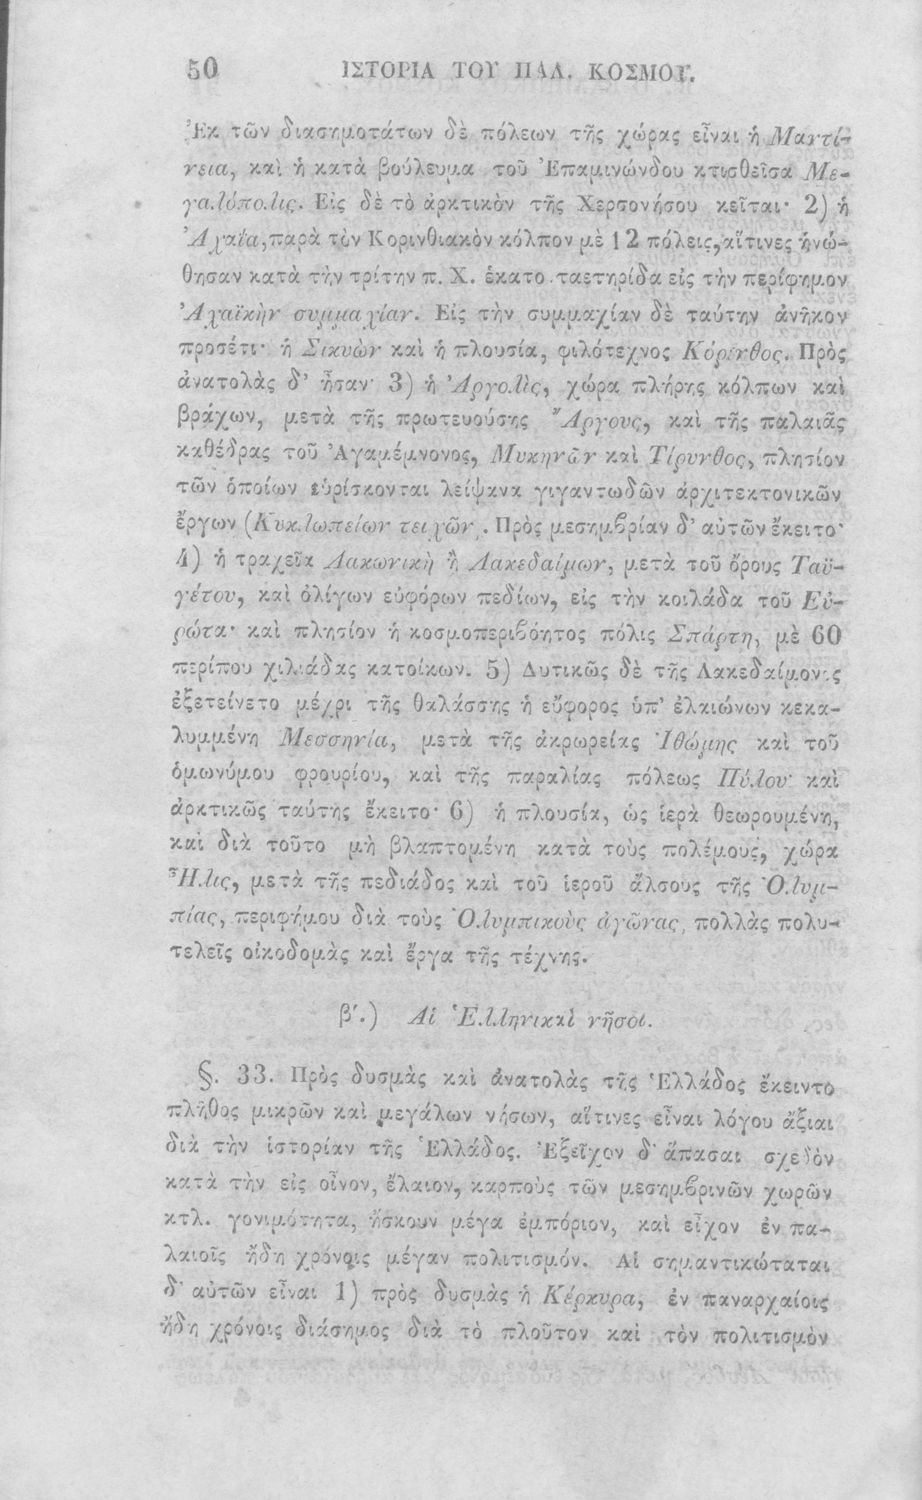 50 ΙΣΤΟΡΙΑ ΤΟΥ ΠΑΛ. ΚΟΣΜΟΥ.
Ἐκ τῶν διασημοτάτων δὲ πόλεων τῆς χώρας εἶναι ἡ Μαντί-
νεια, καὶ ἡ κατὰ βούλευμα τοῦ Ἐπαμινώνδου κτισθεῖσα Με-
γαλόπολις. Εἰς δὲ τὸ ἀρκτικὸν τῆς Χερσονήσου κεῖται· 2) ἡ
Ἀχαΐα, παρὰ τὸν Κορινθιακὸν κόλπον μὲ 12 πόλεις, αἵτινες ἡνώ-
θησαν κατὰ τὴν τρίτην π. Χ. ἑκατονταετηρίδα εἰς τὴν περίφημον
Ἀχαϊκὴν συμμαχίαν. Εἰς τὴν συμμαχίαν δὲ ταύτην ἀνῆκον
προσέτι· ἡ Σικυὼν καὶ ἡ πλουσία, φιλότεχνος Κόρινθος. Πρὸς
ἀνατολὰς δ' ἦσαν· 3) ἡ Ἀργολὶς, χώρα πλήρης κόλπων καὶ
βράχων, μετὰ τῆς πρωτευούσης Ἄργους, καὶ τῆς παλαιᾶς
καθέδρας τοῦ Ἀγαμέμνονος, Μυκηνῶν καὶ Τίρυνθος, πλησίον
τῶν ὁποίων εὑρίσκονται λείψανα γιγαντωδῶν ἀρχιτεκτονικῶν
ἔργων (Κυκλωπείων τειχῶν). Πρὸς μεσημβρίαν δ' αὐτῶν ἔκειτο·
4) ἡ τραχεῖα Λακωνικὴ ἢ Λακεδαίμων, μετὰ τοῦ ὄρους Ταϋ-
γέτου, καὶ ὀλίγων εὐφόρων πεδίων, εἰς τὴν κοιλάδα τοῦ Εὐ-
ρώτα· καὶ πλησίον ἡ κοσμοπεριβόητος πόλις Σπάρτη, μὲ 60
περίπου χιλιάδας κατοίκων. 5) Δυτικῶς δὲ τῆς Λακεδαίμονος
ἐξετείνετο μέχρι τῆς θαλάσσης ἡ εὔφορος ὑπ' ἐλαιώνων κεκα-
λυμμένη Μεσσηνία, μετὰ τῆς ἀκρωρείας Ἰθώμης καὶ τοῦ
ὁμωνύμου φρουρίου, καὶ τῆς παραλίας πόλεως Πύλου· καὶ
ἀρκτικῶς ταύτης ἔκειτο· 6) ἡ πλουσία, ὡς ἱερὰ θεωρουμένη,
καὶ διὰ τοῦτο μὴ βλαπτομένη κατὰ τοὺς πολέμους, χώρα
Ἦλις, μετὰ τῆς πεδιάδος καὶ τοῦ ἱεροῦ ἄλσους τῆς Ὀλυμ-
πίας, περιφήμου διὰ τοὺς Ὀλυμπικοὺς ἀγῶνας, πολλὰς πολυ-
τελεῖς οἰκοδομὰς καὶ ἔργα τῆς τέχνης.
β΄.) Αἱ Ἑλληνικαὶ νῆσοι.
§. 33. Πρὸς δυσμὰς καὶ ἀνατολὰς τῆς Ἑλλάδος ἔκειντο
πλῆθος μικρῶν καὶ μεγάλων νήσων, αἵτινες εἶναι λόγου ἄξιαι
διὰ τὴν ἱστορίαν τῆς Ἑλλάδος. Ἐξεῖχον δ' ἅπασαι σχεδὸν
κατὰ τὴν εἰς οἶνον, ἔλαιον, καρποὺς τῶν μεσημβρινῶν χωρῶν
κτλ. γονιμότητα, ἤσκουν μέγα ἐμπόριον, καὶ εἶχον ἐν πα-
λαιοῖς ἤδη χρόνοις μέγαν πολιτισμόν. Αἱ σημαντικώταται
δ' αὐτῶν εἶναι 1) πρὸς δυσμὰς ἡ Κέρκυρα, ἐν παναρχαίοις
ἤδη χρόνοις διάσημος διὰ τὸ πλοῦτον καὶ τὸν πολιτισμὸν